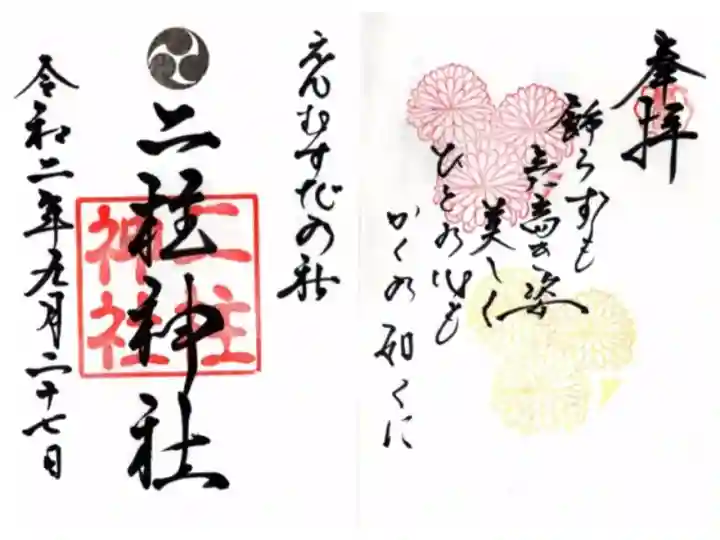 奉拝
飾らずも
美しく
ひとの心も
かくの如くに
えんむすびの社
二柱神社
二柱
神社
令和二年九月二十七日